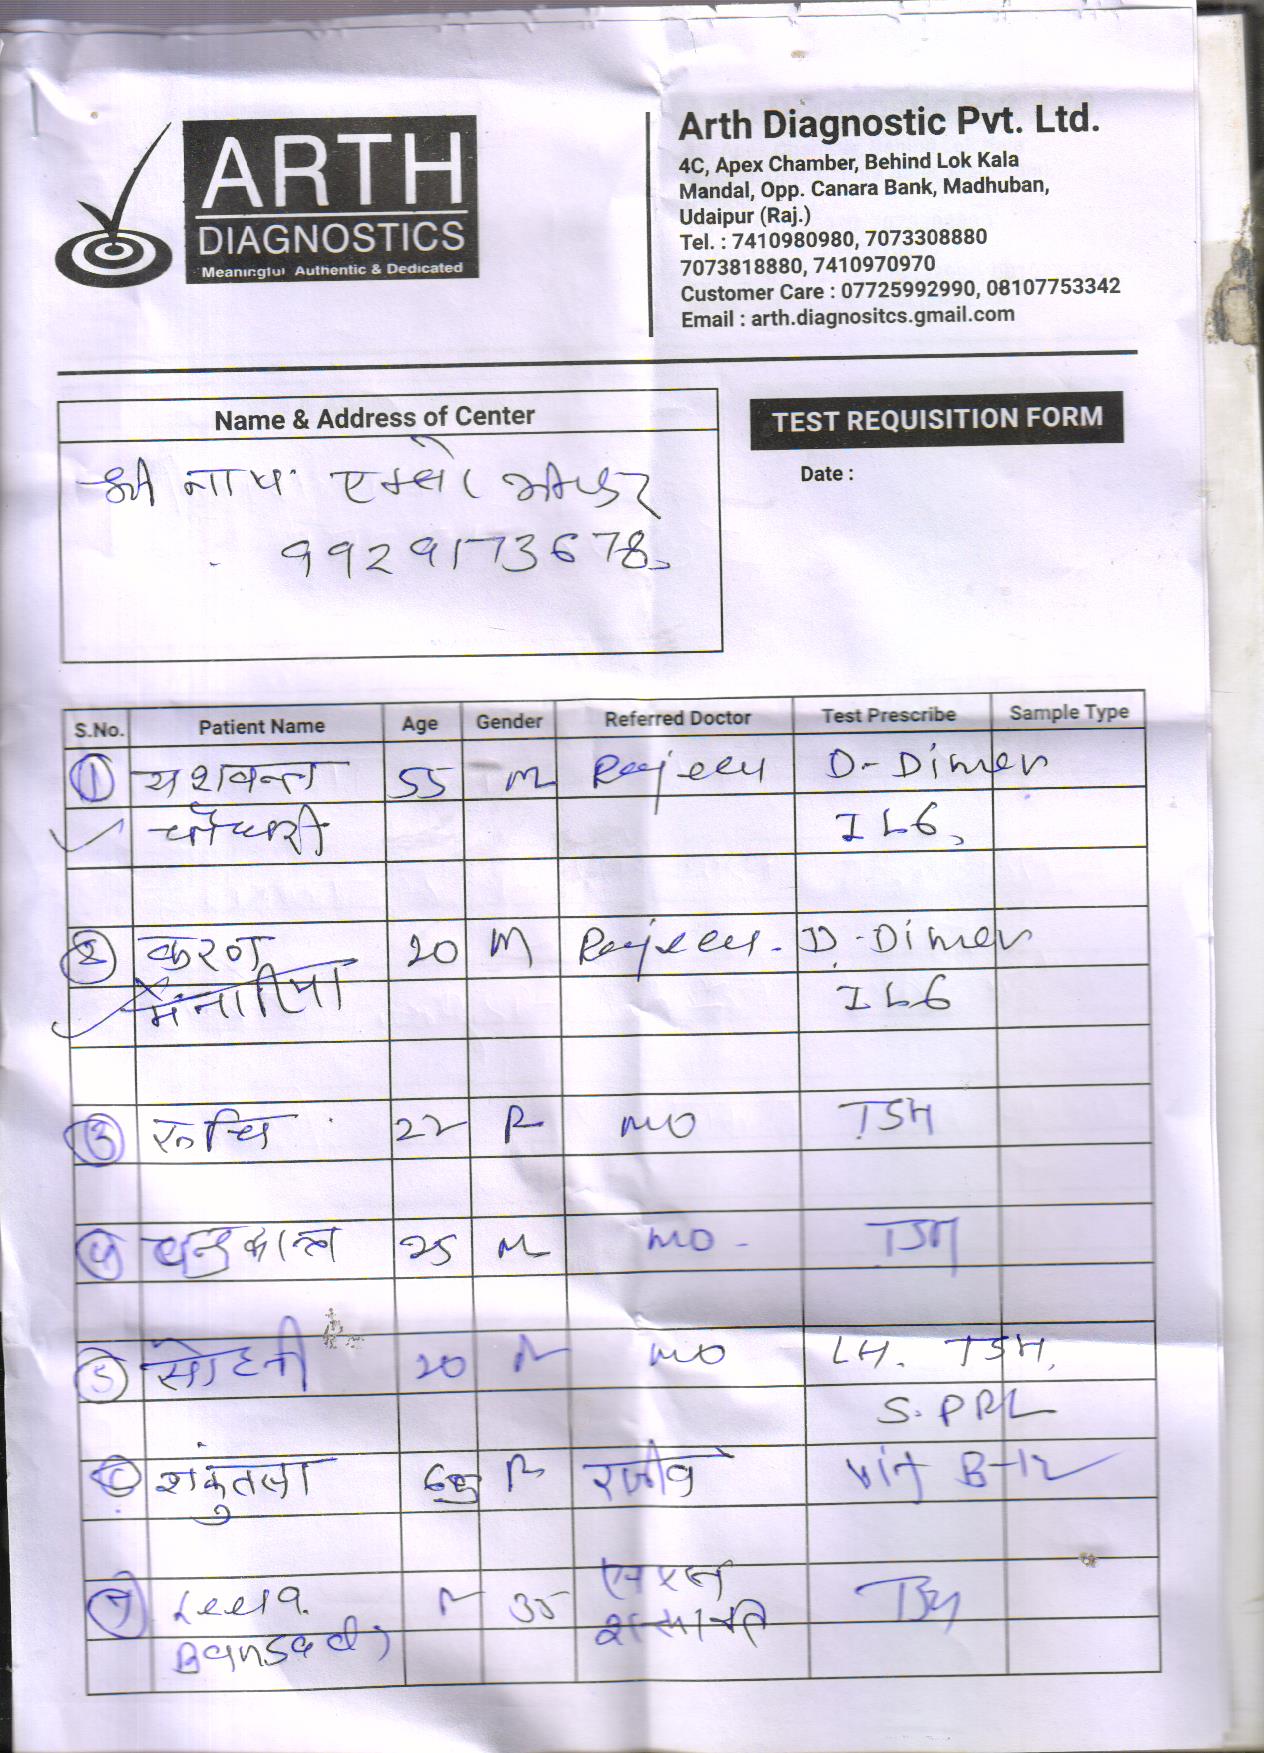 ARTH
DIAGNOSTICS
Meaningful Authentic & Dedicated
Arth Diagnostic Pvt. Ltd.
4C, Apex Chamber, Behind Lok Kala
Mandal, Opp. Canara Bank, Madhuban,
Udaipur (Raj.)
Tel. : 7410980980, 7073308880
7073818880, 7410970970
Customer Care : 07725992990, 08107753342
Email : arth.diagnositcs.gmail.com
Name & Address of Center
TEST REQUISITION FORM
Date :
श्री नाथ
9929173678
S.No. Patient Name Age Gender Referred Doctor Test Prescribe Sample Type
1 यशवन्त 55 M Rajeev D-Dimer
चौधरी IL6,
2 करण 20 M Rajeev. D-Dimer
मेनारिया IL6
3 रूचि 22 F MO TSH
4 चन्द्रकान्त 25 M MO - TSH
5 20 F MO LH. TSH,
S.PRL
6 शकुंतला F राजीव Vit B-12
7 Leela F 35
Bansadi